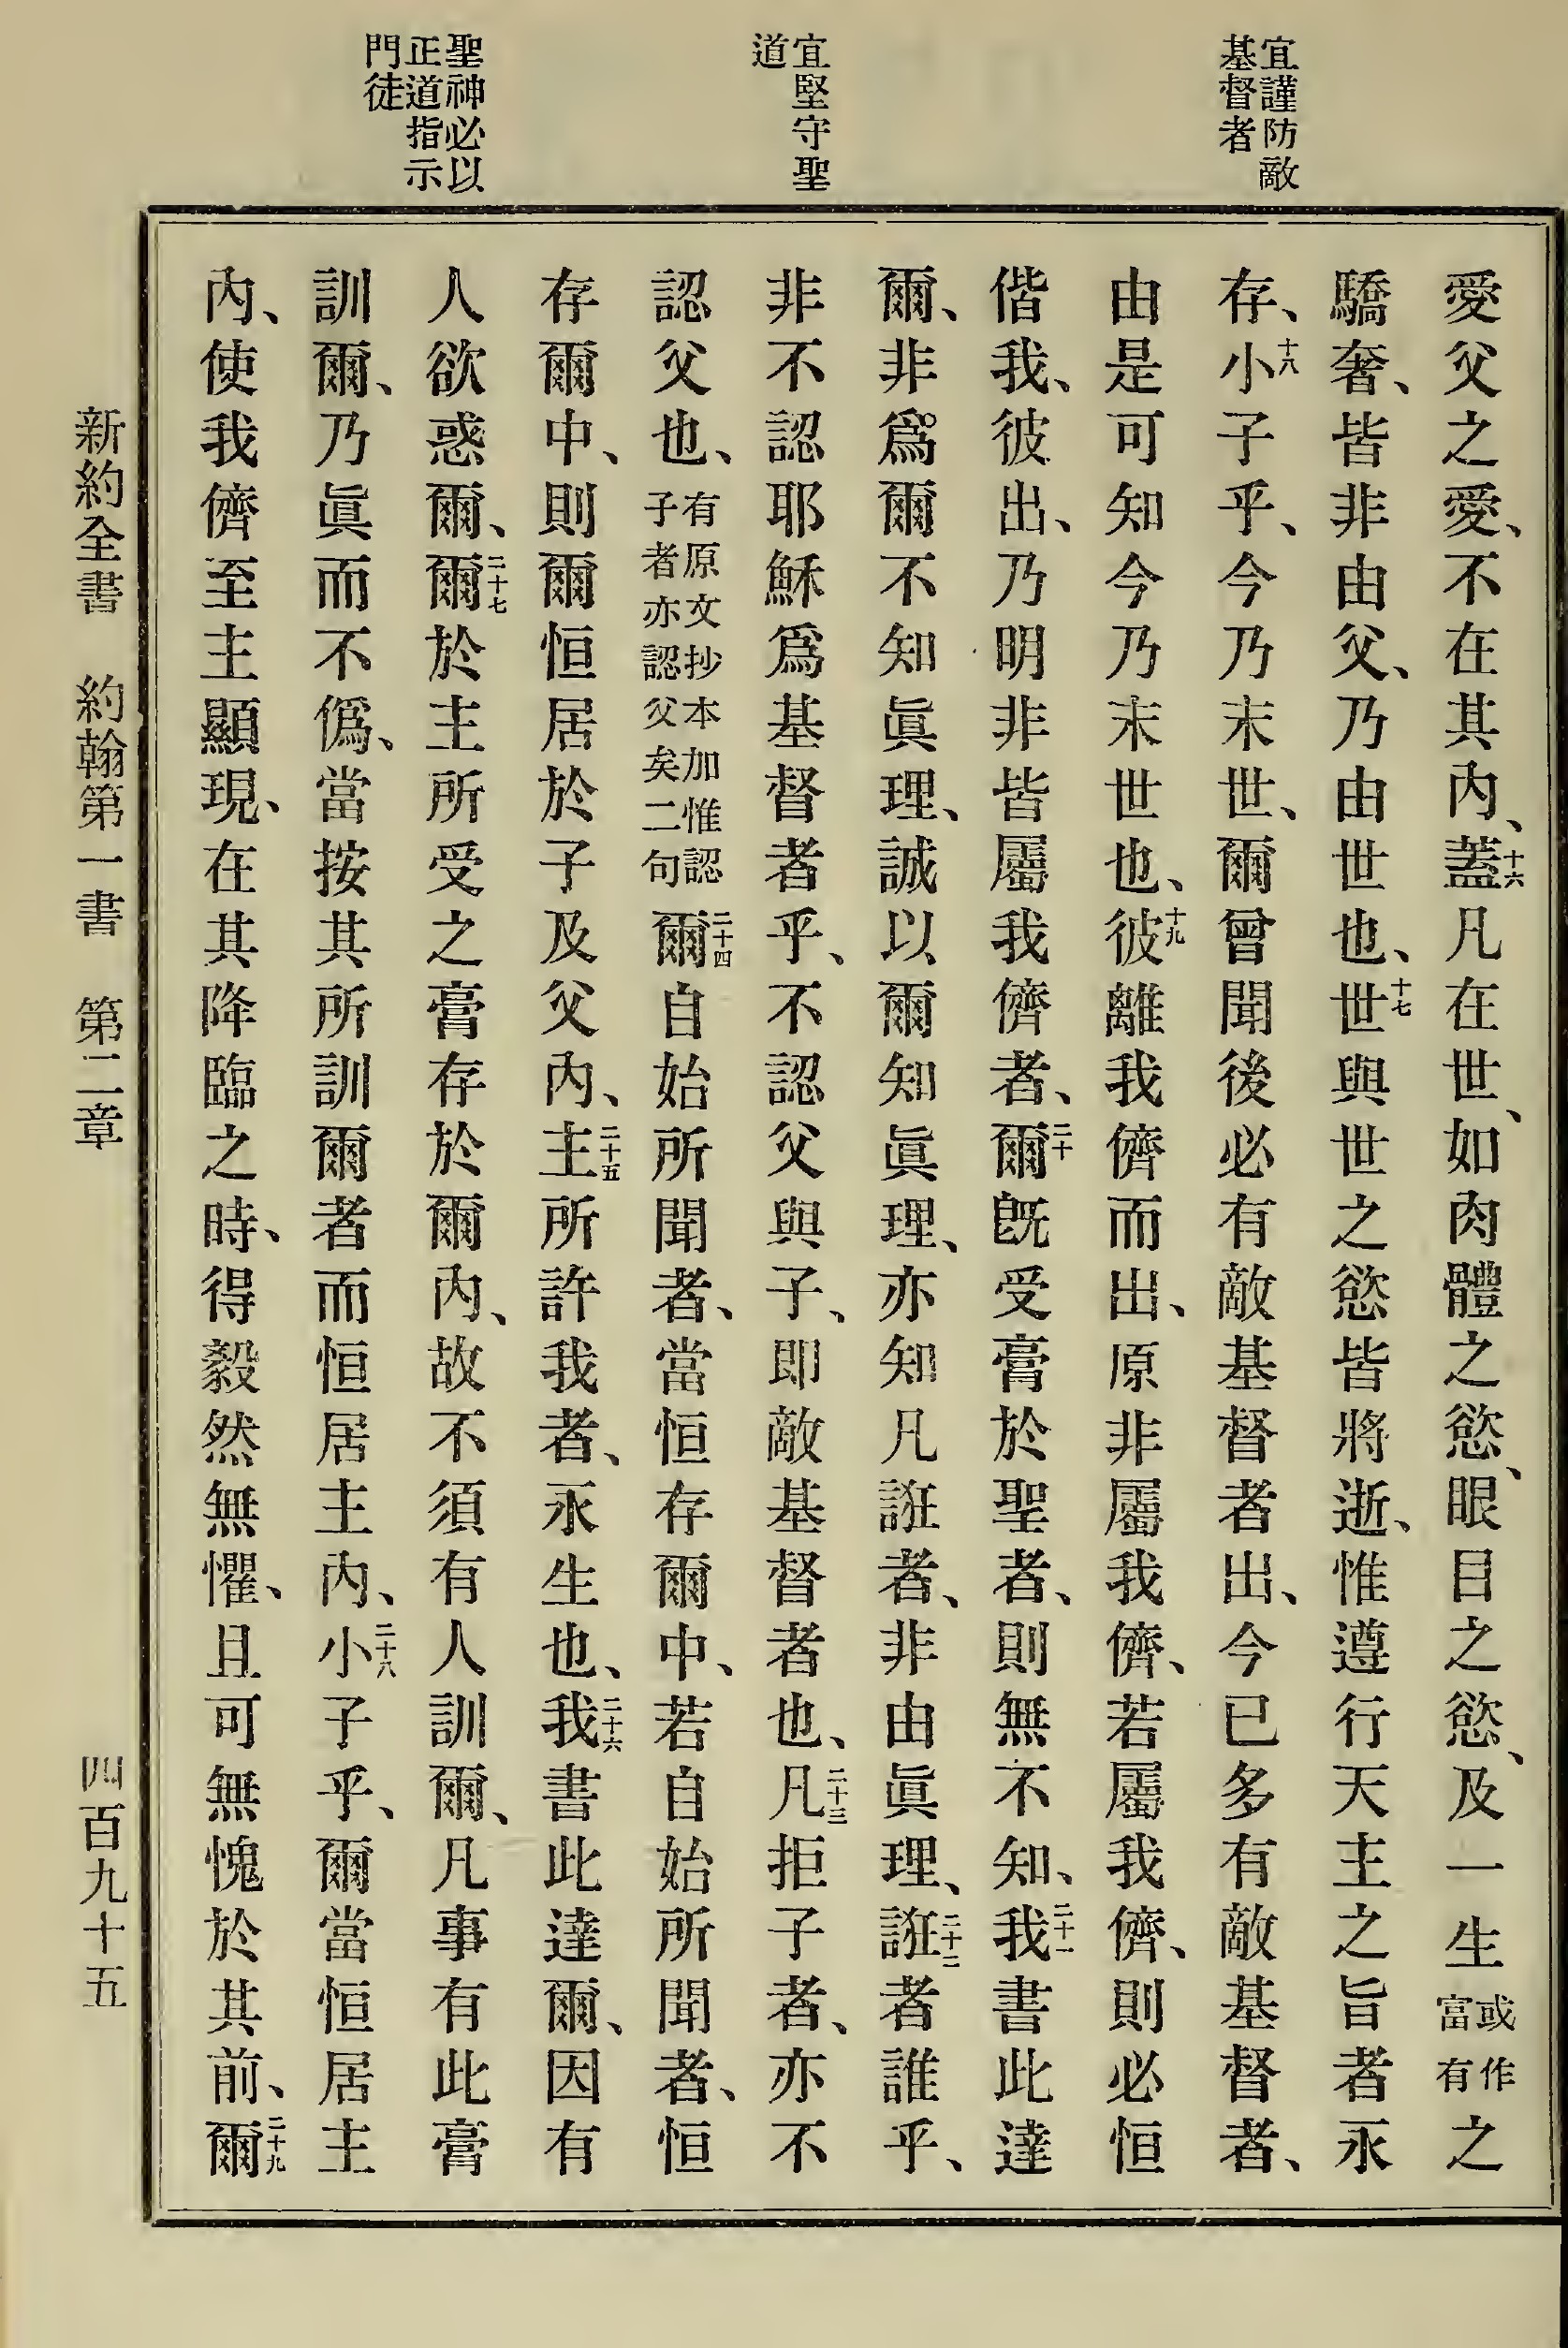 宜謹防敵
基督者
宜堅守聖
道
聖神必以
正道指示
門徒
愛父之愛、不在其內、十六蓋凡在世、如肉體之慾、眼目之慾、及一生或作富有之
驕奢、皆非由父、乃由世也、十七世與世之慾皆將逝、惟遵行天主之旨者永
存、十八小子乎、今乃末世、爾曾聞後必有敵基督者出、今已多有敵基督者、
由是可知今乃末世也、十九彼離我儕而出、原非屬我儕、若屬我儕、則必恒
偕我、彼出、乃明非皆屬我儕者、二十爾旣受膏於聖者、則無不知、二十一我書此達
爾、非爲爾不知眞理、誠以爾知眞理、亦知凡誑者、非由眞理、二十二誑者誰乎、
非不認耶穌爲基督者乎、不認父與子、即敵基督者也、二十三凡拒子者、亦不
認父也、有原文抄本加惟認子者亦認父矣二句二十四爾自始所聞者、當恒存爾中、若自始所聞者、恒
存爾中、則爾恒居於子及父內、二十五主所許我者、永生也、二十六我書此達爾、因有
人欲惑爾、二十七爾於主所受之膏存於爾內、故不須有人訓爾、凡事有此膏
訓爾、乃眞而不僞、當按其所訓爾者而恒居主內、二十八小子乎、爾當恒居主
內、使我儕至主顯現、在其降臨之時、得毅然無懼、且可無愧於其前、二十九爾
新約全書 約翰第一書 第二章 四百九十五